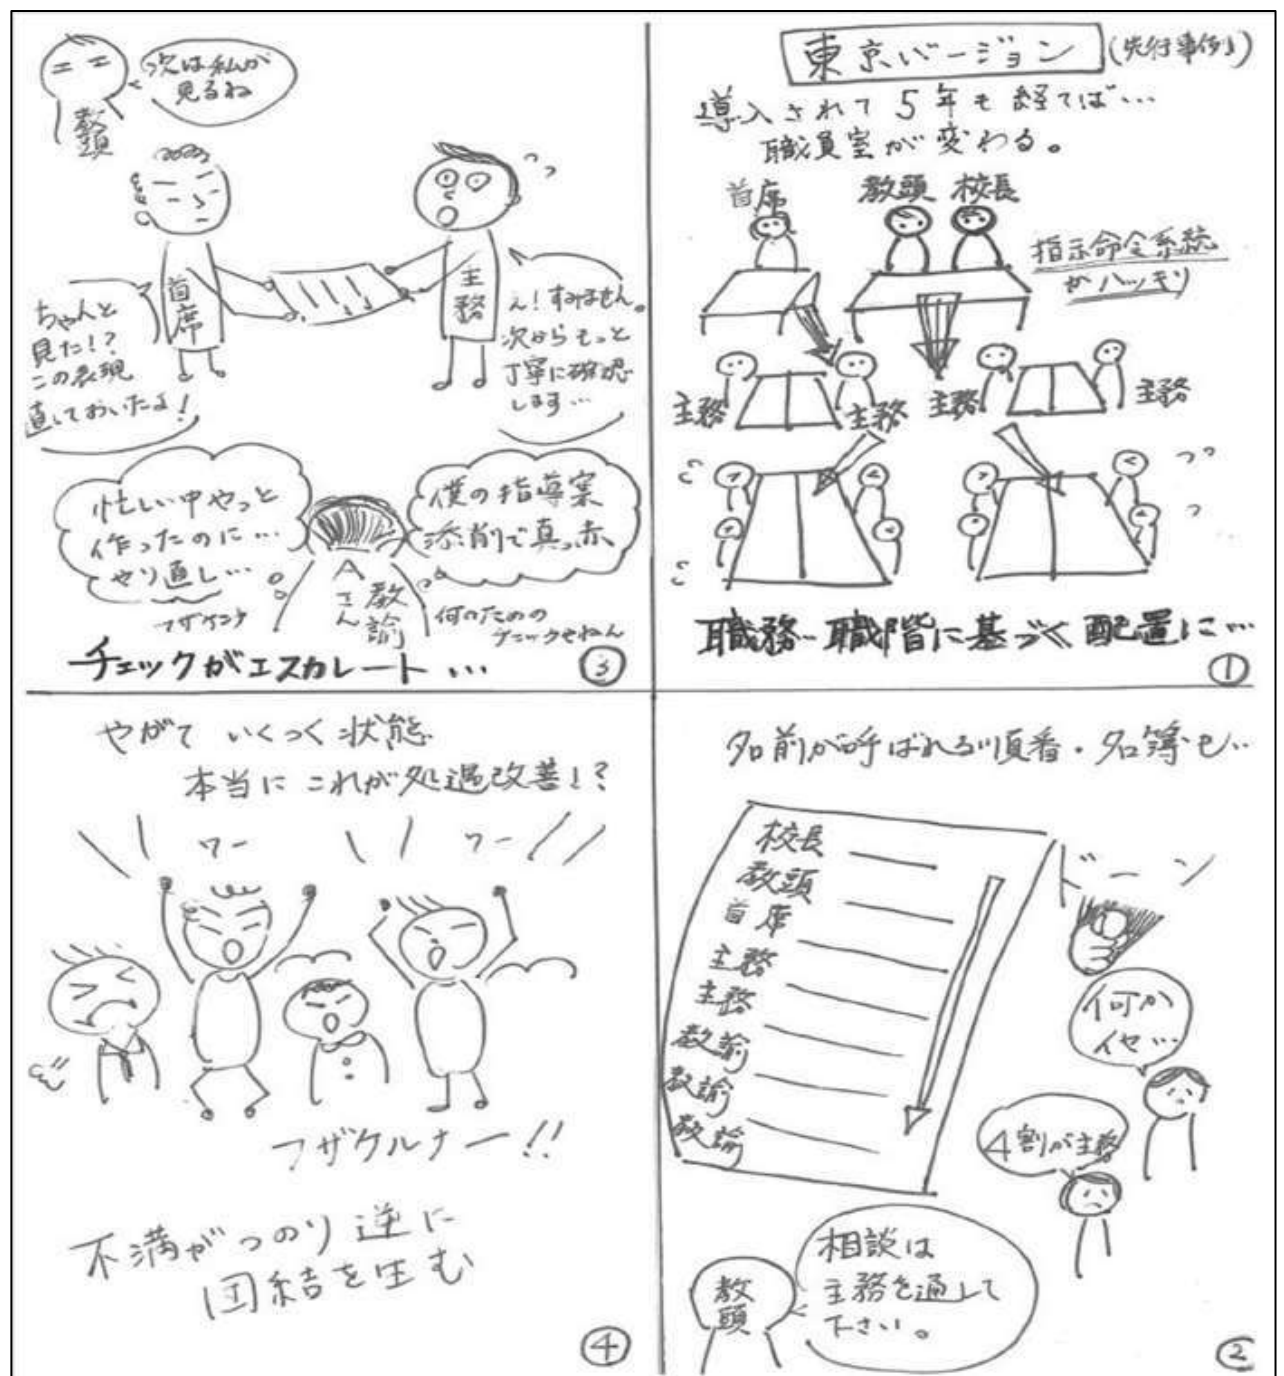 東京バージョン
(先行事例)
導入されて5年も経てば…
職員室が変わる。
首席
教頭 校長
指示命令系統
がハッキリ
主務
主務
主務
主務
職務・職階に基づく配置に…
①
名前が呼ばれる順番・名簿も…
校長
教頭
首席
主務
主務
教諭
教諭
教諭
ドーン
何か
イヤ…
4割が主務
教頭
相談は
主務を通して
下さい。
②
次は私が
見るね
教頭
首席
主務
ちゃんと
見た!?
この表現
直しておいたよ!
え!すみません。
次からもっと
丁寧に確認
します…
忙しい中やっと
作ったのに…
やり直し…
僕の指導案
添削で真っ赤
教諭
Aさん
フザケンナ
何のための
チェックやねん
チェックがエスカレート…
③
やがていくつく状態
本当にこれが処遇改善!?
ワー
ワー
フザケルナー!!
不満がつのり逆に
団結を生む
④